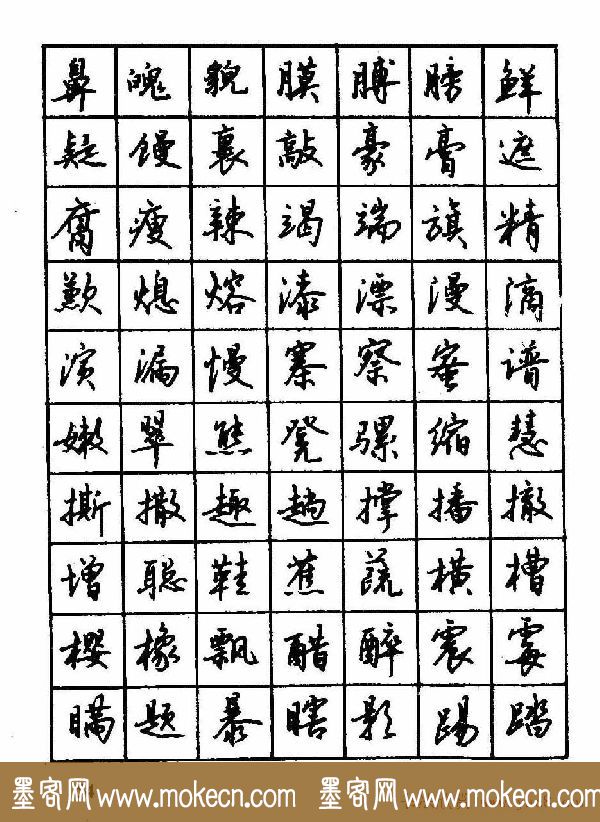 鼻魄貌膜膊膀鲜
疑馒裹敲豪膏遮
腐瘦辣竭端旗精
歉熄熔漆漂漫滴
演漏慢寨察蜜谱
嫩翠熊凳骡缩慧
撕撒趣趟撑播撤
增聪鞋蕉蔬横槽
樱橡飘醋醉震霉
瞒题暴瞎影踢踏
墨客网 www.mokecn.com 墨客网 www.mokecn.com